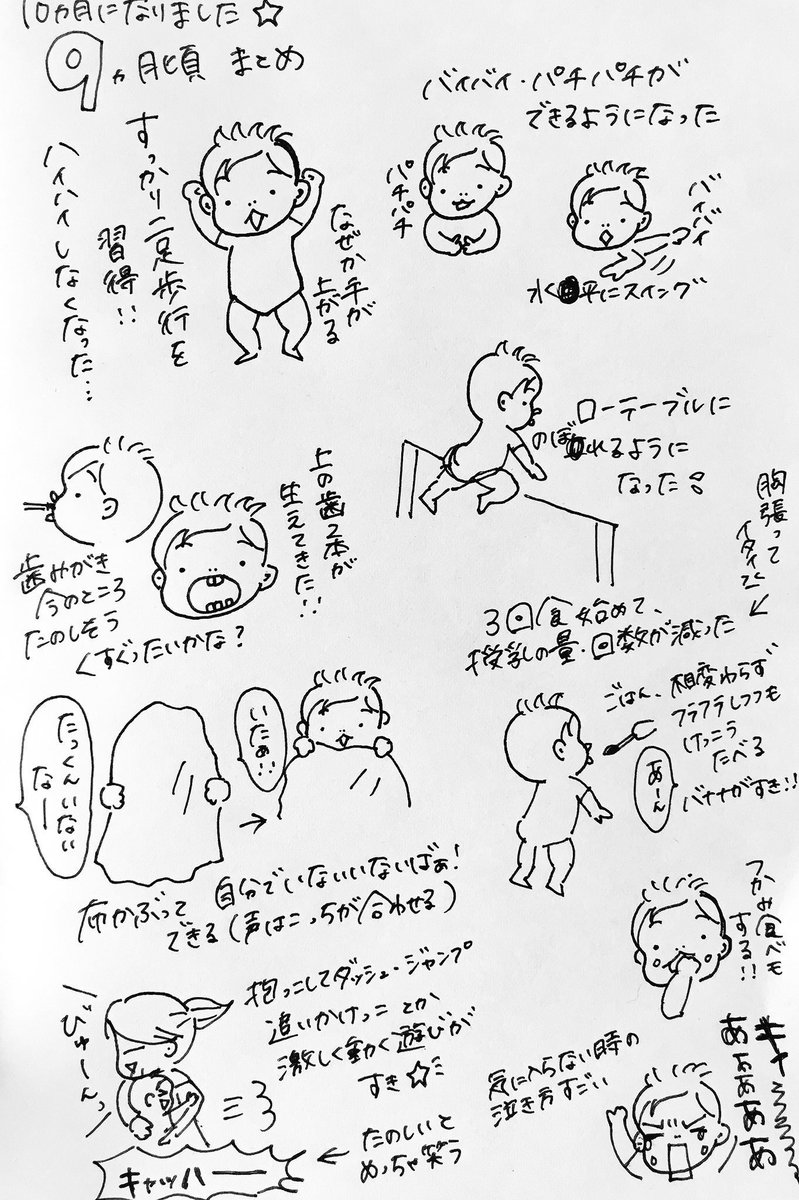 10ヵ月になりました☆
9ヵ月頃 まとめ
すっかり二足歩行を
習得!!
ハイハイしなくなった…
なぜか手が
上がる
バイバイ・パチパチが
できるようになった
パチパチ
バイバイ
水平にスイング
ローテーブルに
のぼれるように
なった
上の歯2本が
生えてきた!!
歯みがき
今のところ
たのしそう
くすぐったいかな?
胸張って
イタイ
3回食始めて、
授乳の量・回数が減った
ごはん、相変わらず
フラフラしつつも
けっこう
たべる
バナナがすき!!
あーん
たっくんいない
なー
→
いたぁ!!
布かぶって 自分でいないいないばぁ!
できる(声はこっちが合わせる)
つかみ食べも
する!!
びゅーんっ
抱っこしてダッシュ・ジャンプ
追いかけっことか
激しく動く遊びが
すき☆
← たのしいと
めっちゃ笑う
キャッハーーー
気に入らない時の
泣き方すごい
ギャ
あぁぁああ